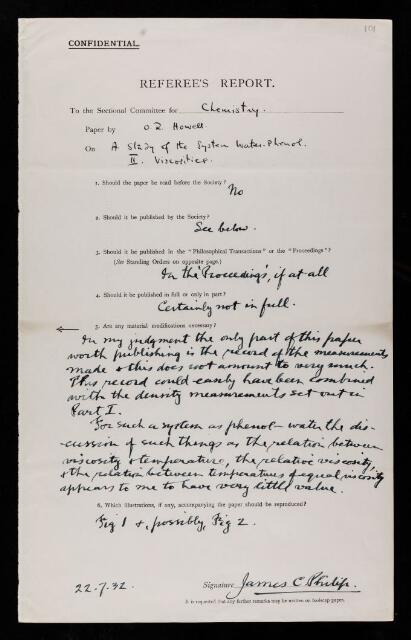 101
CONFIDENTIAL.
REFEREE'S REPORT.
To the Sectional Committee for Chemistry.
Paper by O. R. Howell.
On A Study of the System Water-Phenol.
II. Viscosities.
1. Should the paper be read before the Society?
No
2. Should it be published by the Society?
See below.
3. Should it be published in the "Philosophical Transactions" or the "Proceedings"?
(See Standing Orders on opposite page.)
In the 'Proceedings', if at all
4. Should it be published in full or only in part?
Certainly not in full.
5. Are any material modifications necessary?
In my judgment the only part of this paper
worth publishing is the record of the measurements
made & this does not amount to very much.
This record could easily have been combined
with the density measurements set out in
Part I.
For such a system as phenol-water the dis-
-cussion of such things as the relation between
viscosity & temperature, the relative viscosity,
& the relation between temperatures of equal viscosity
appears to me to have very little value.
6. Which illustrations, if any, accompanying the paper should be reproduced?
Fig 1 &, possibly, Fig 2.
22.7.32. Signature James C. Philip.
It is requested that any further remarks may be written on foolscap paper.